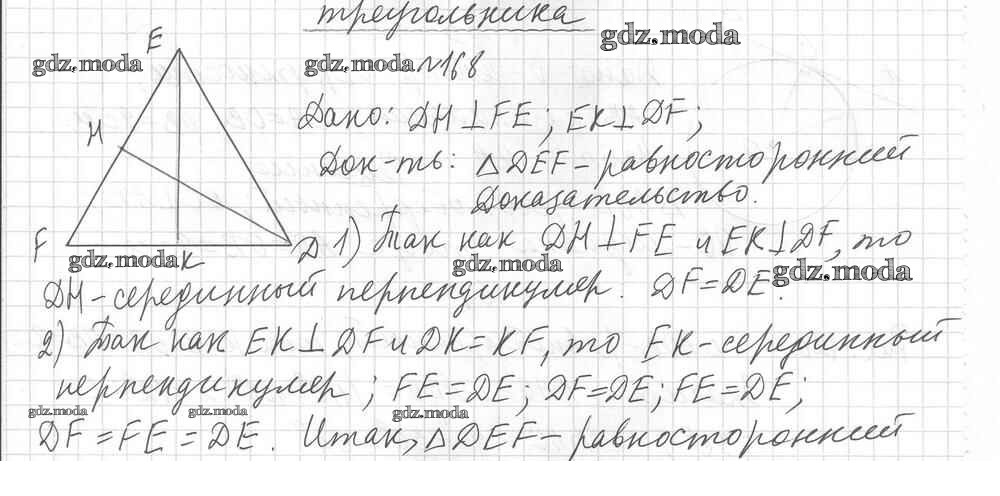 треугольника
gdz.moda
E
gdz.moda
gdz.moda №168
Дано: DH⊥FE; EK⊥DF;
H
Док-ть: △DEF – равносторонний
Доказательство.
F
D
1) Так как DH⊥FE и EK⊥DF, то
gdz.moda
K
gdz.moda
gdz.moda
DH-серединный перпендикуляр. DF=DE.
2) Так как EK⊥DF и DK=KF, то EK-серединный
перпендикуляр; FE=DE; DF=DE; FE=DE;
gdz.moda
gdz.moda
gdz.moda
DF=FE=DE. Итак, △DEF – равносторонний